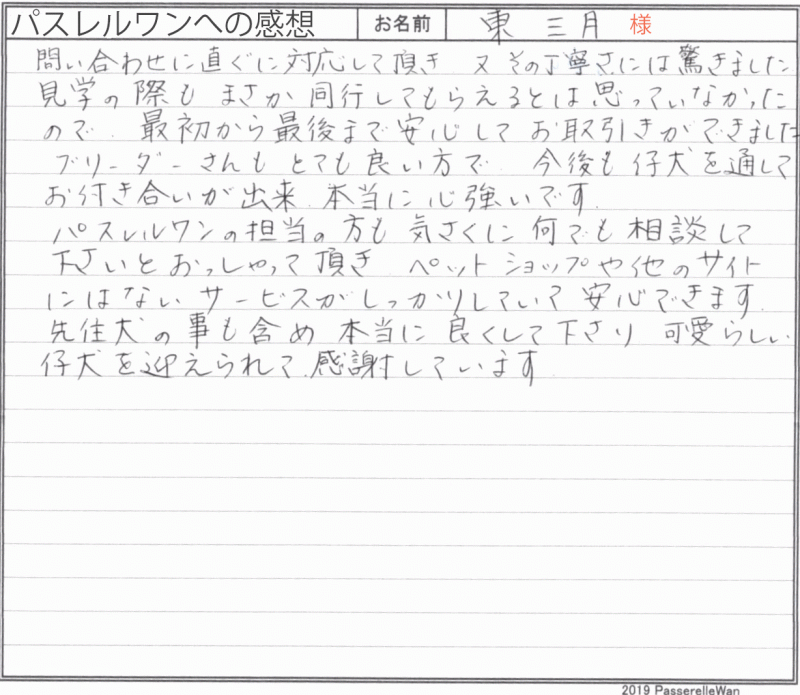 パスレルワンへの感想 お名前 東 三月 様
問い合わせに直ぐに対応して頂き 又その丁寧さには驚きました
見学の際も まさか 同行してもらえるとは思っていなかった
ので 最初から最後まで安心して お取引きができました
ブリーダーさんも とても良い方で 今後も仔犬を通して
お付き合いが出来 本当に心強いです
パスレルワンの担当の方も 気さくに何でも相談して
下さいと おっしゃって頂き ペットショップや他のサイト
にはないサービスがしっかりしていて 安心できます
先住犬の事も含め 本当に良くして下さり 可愛らしい
仔犬を迎えられて 感謝しています
2019 PasserelleWan